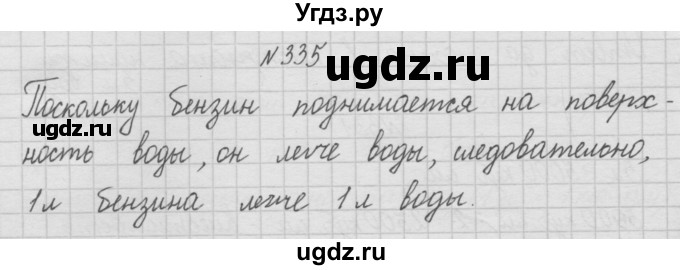 Угдз.ру
№ 335
ugdz.ru
Поскольку бензин поднимается на поверх-
ugdz.ru
ность воды, он легче воды, следовательно,
1л бензина легче 1л воды.
ugdz.ru